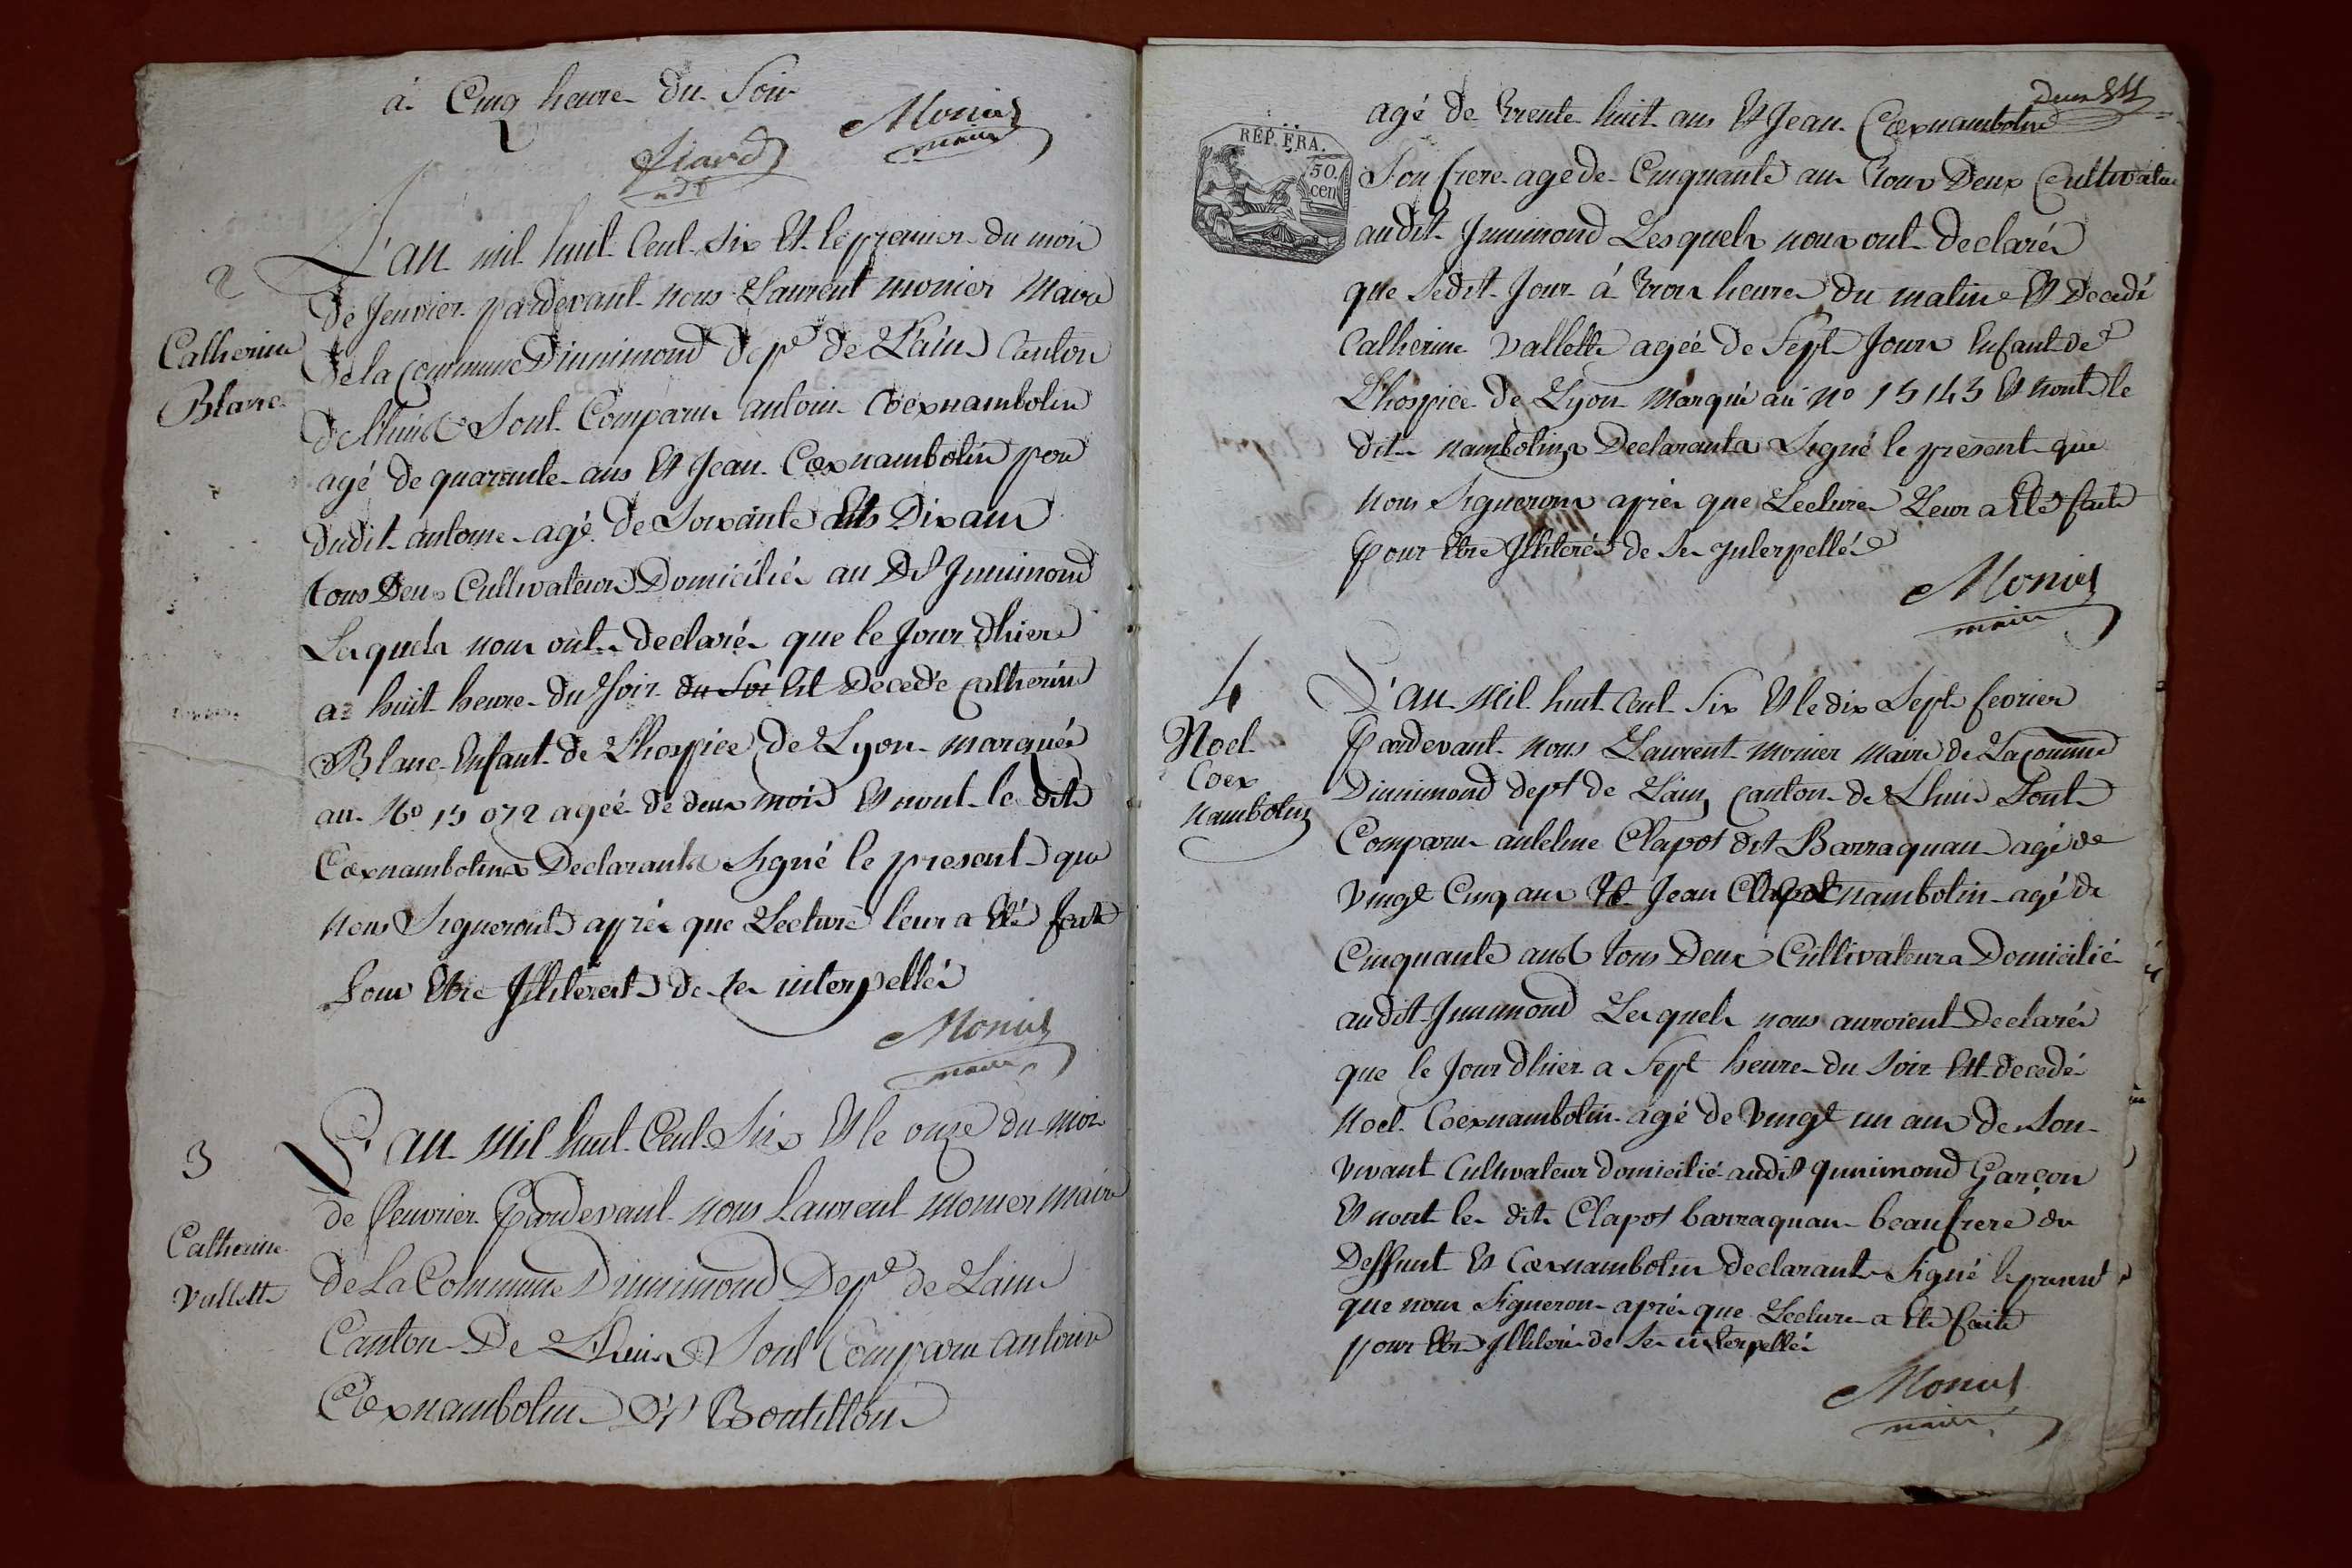 à Cinq heure du Soir
Monier
maire
L'an mil huit Cent Six Et le premier du moi
2
de Jenvier pardevant nous Laurent monier Maire
Catherine
de la Commune Dinnimond depe de Lain Canton
Blanc
de Lhuis Sont Comparu antoin Coexnambolin
agé de quarante ans Et Jean Coexnambolin per
dudit antoine agé de Soixante Et Dix ans
tous Deux Cultivateurs Domicilié au Dt Innimond
Lesquels nous ont declaré que le Jour dhier
a huit heure du Soir du Soi Est Decedé Catherine
Blanc Enfant de Lhospice de Lyon marqué
au No 15072 ageé de deux mois Et nont le dit
Coexnambolin Declarants Signé le present que
nous Signeront aprés que Lecture leur a Eté fait
pour Etre Illiterent de ce interpellés
Monier
maire
L'an Mil huit Cent Six Et le onze du moi
3
de fevrier Pardevant nous Laurent monier maire
Catherine
Vallette
de La Commune Dinnimond Depe de Lain
Canton De Lhuis Sont Comparu antoine
Coexnambolin Dt Boutillon
deux
REP. FRA.
50.
cen
agé de Trente huit ans Et Jean Coexnambolin
Son frere agé de Cinquante an Tous Deux Cultivateur
audit Innimond Lesquels nous ont declarés
que Sedit Jour à Trois heure du matin Et Decedé
Catherine Vallette ageé de Sept Jours Enfant de
Lhospice de Lyon Marqué au No 15143 Et nont le
dit nambolin Declarants Signé le present que
nous Signerons aprés que Lecture Leur a Eté fait
pour Etre Illiterés de Se Interpellés
Monier
maire
4
L'an Mil huit Cent Six Et le dix Sept fevrier
Noel
Coex
nambolin
Pardevant nous Laurent monier maire de La Comune
Dinnimond dept de Lain Canton de Lhuis Sont
Comparu antelme Clapot dit Barraquan agé de
vingt Cinq ans Et Jean Clapot nambolin agé de
Cinquante ans tous Deux Cultivateurs Domicilié
audit Innimond Lesquels nous auroient Declarés
que le Jour dhier a Sept heure du Soir Est decedé
Noel Coexnambolin agé de Vingt un ans de Son
vivant Cultivateur domicilié audit Ynnimond Garçon
Et nont les dit Clapot barraquan beaufrere du
Deffunt Et Coexnambolin declarants Signé le present
que nous Signeron aprés que Lecture a Eté faite
pour Etre Illiteré de Se interpellés
Monier
maire